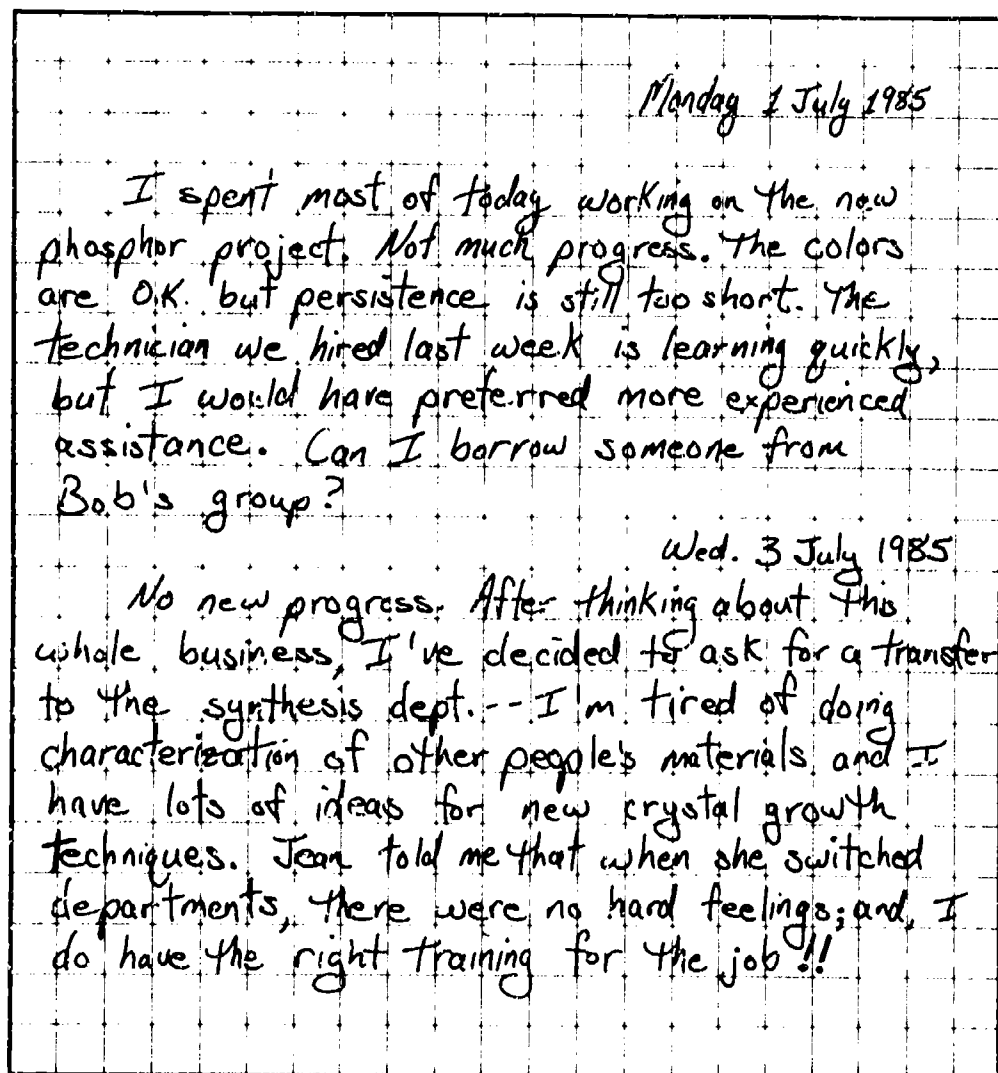 Monday 1 July 1985
I spent most of today working on the new
phosphor project. Not much progress. The colors
are O.K. but persistence is still too short. The
technician we hired last week is learning quickly,
but I would have preferred more experienced
assistance. Can I borrow someone from
Bob's group?
Wed. 3 July 1985
No new progress. After thinking about this
whole business, I've decided to ask for a transfer
to the synthesis dept. -- I'm tired of doing
characterization of other people's materials and I
have lots of ideas for new crystal growth
techniques. Jean told me that when she switched
departments, there were no hard feelings; and, I
do have the right training for the job!!